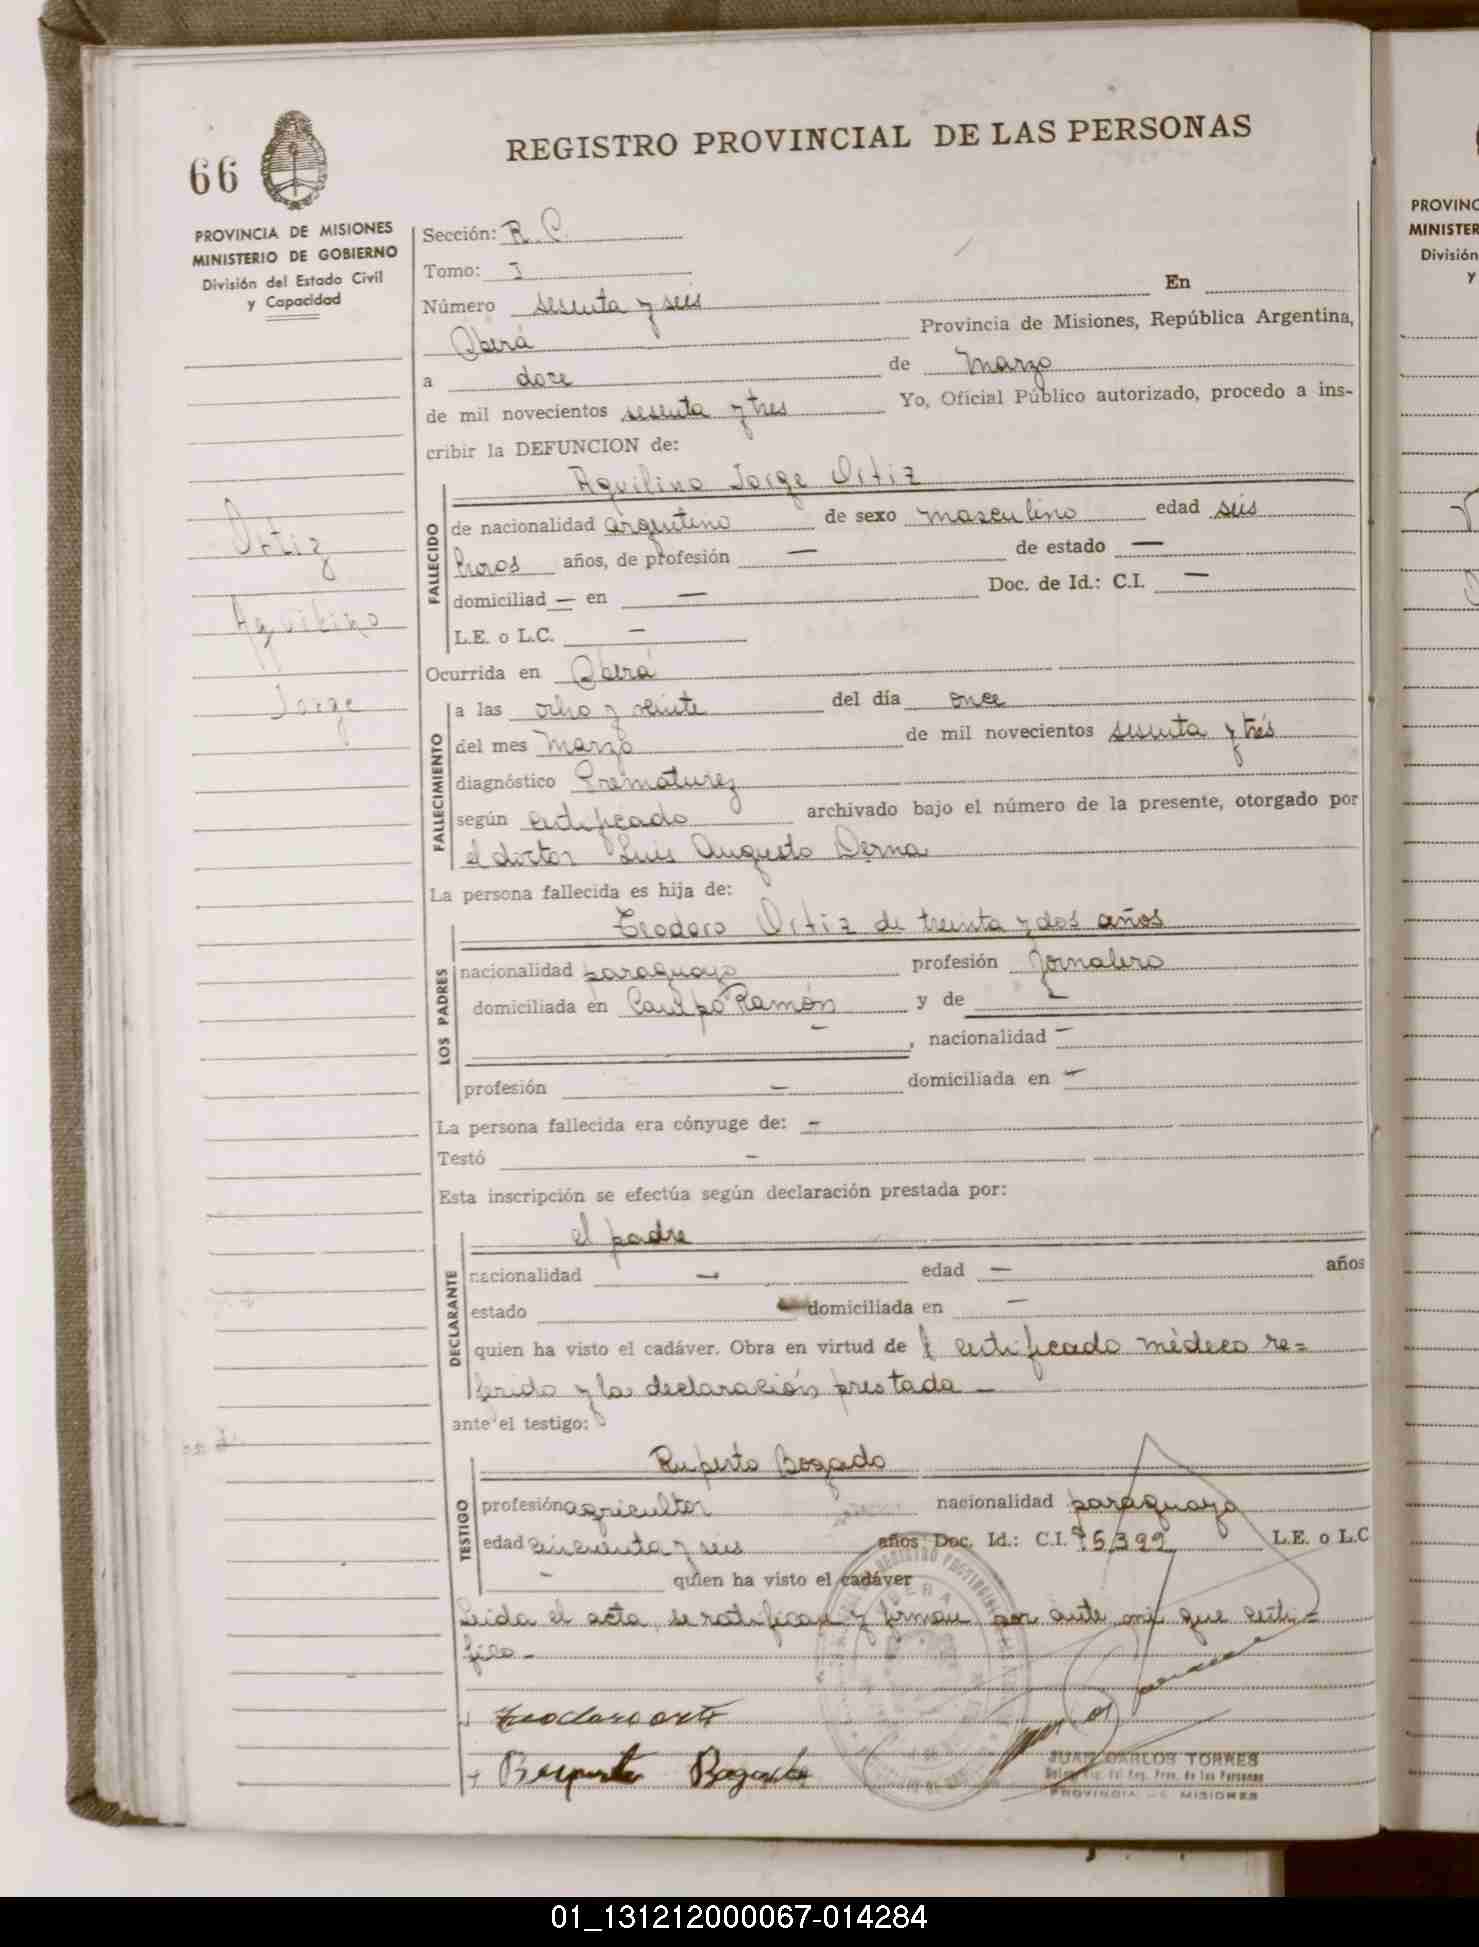 REGISTRO PROVINCIAL DE LAS PERSONAS
66
PROVINCIA DE MISIONES
MINISTERIO DE GOBIERNO
División del Estado Civil
y Capacidad
Ortiz
Aquilino
Jorge
Sección: R. C.
Tomo: I
Número sesenta y seis En
Oberá Provincia de Misiones, República Argentina,
a doce de Marzo
de mil novecientos sesenta y tres Yo, Oficial Público autorizado, procedo a ins-
cribir la DEFUNCION de:
Aquilino Jorge Ortiz
FALLECIDO
de nacionalidad argentino de sexo masculino edad seis
horas años, de profesión — de estado —
domiciliad — en — Doc. de Id.: C.I. —
L.E. o L.C. —
Ocurrida en Oberá
FALLECIMIENTO
a las ocho y veinte del día once
del mes Marzo de mil novecientos sesenta y tres
diagnóstico Prematurez
según certificado archivado bajo el número de la presente, otorgado por
el doctor Luis Augusto Derna
La persona fallecida es hija de:
LOS PADRES
Teodoro Ortiz de treinta y dos años
nacionalidad paraguayo profesión Jornalero
domiciliada en Campo Ramón y de —
—, nacionalidad —
profesión — domiciliada en —
La persona fallecida era cónyuge de: —
Testó —
Esta inscripción se efectúa según declaración prestada por:
DECLARANTE
el padre
nacionalidad — edad — años
estado — domiciliada en —
quien ha visto el cadáver. Obra en virtud de l certificado médico re=
ferido y la declaración prestada —
ante el testigo:
TESTIGO
Ruperto Bogado
profesión agricultor nacionalidad paraguaya
edad cincuenta y seis años Doc. Id.: C.I. 95.399 L.E. o L.C
— quien ha visto el cadáver
Leida el acta, se ratifican y firman por ante mi que certi=
fico —
Teodoro orti
Ruperto Bogado
JUAN CARLOS TORRES
Reg. Prov. de las Personas
PROVINCIA DE MISIONES
PROVINC
MINISTER
División
y
01_131212000067-014284